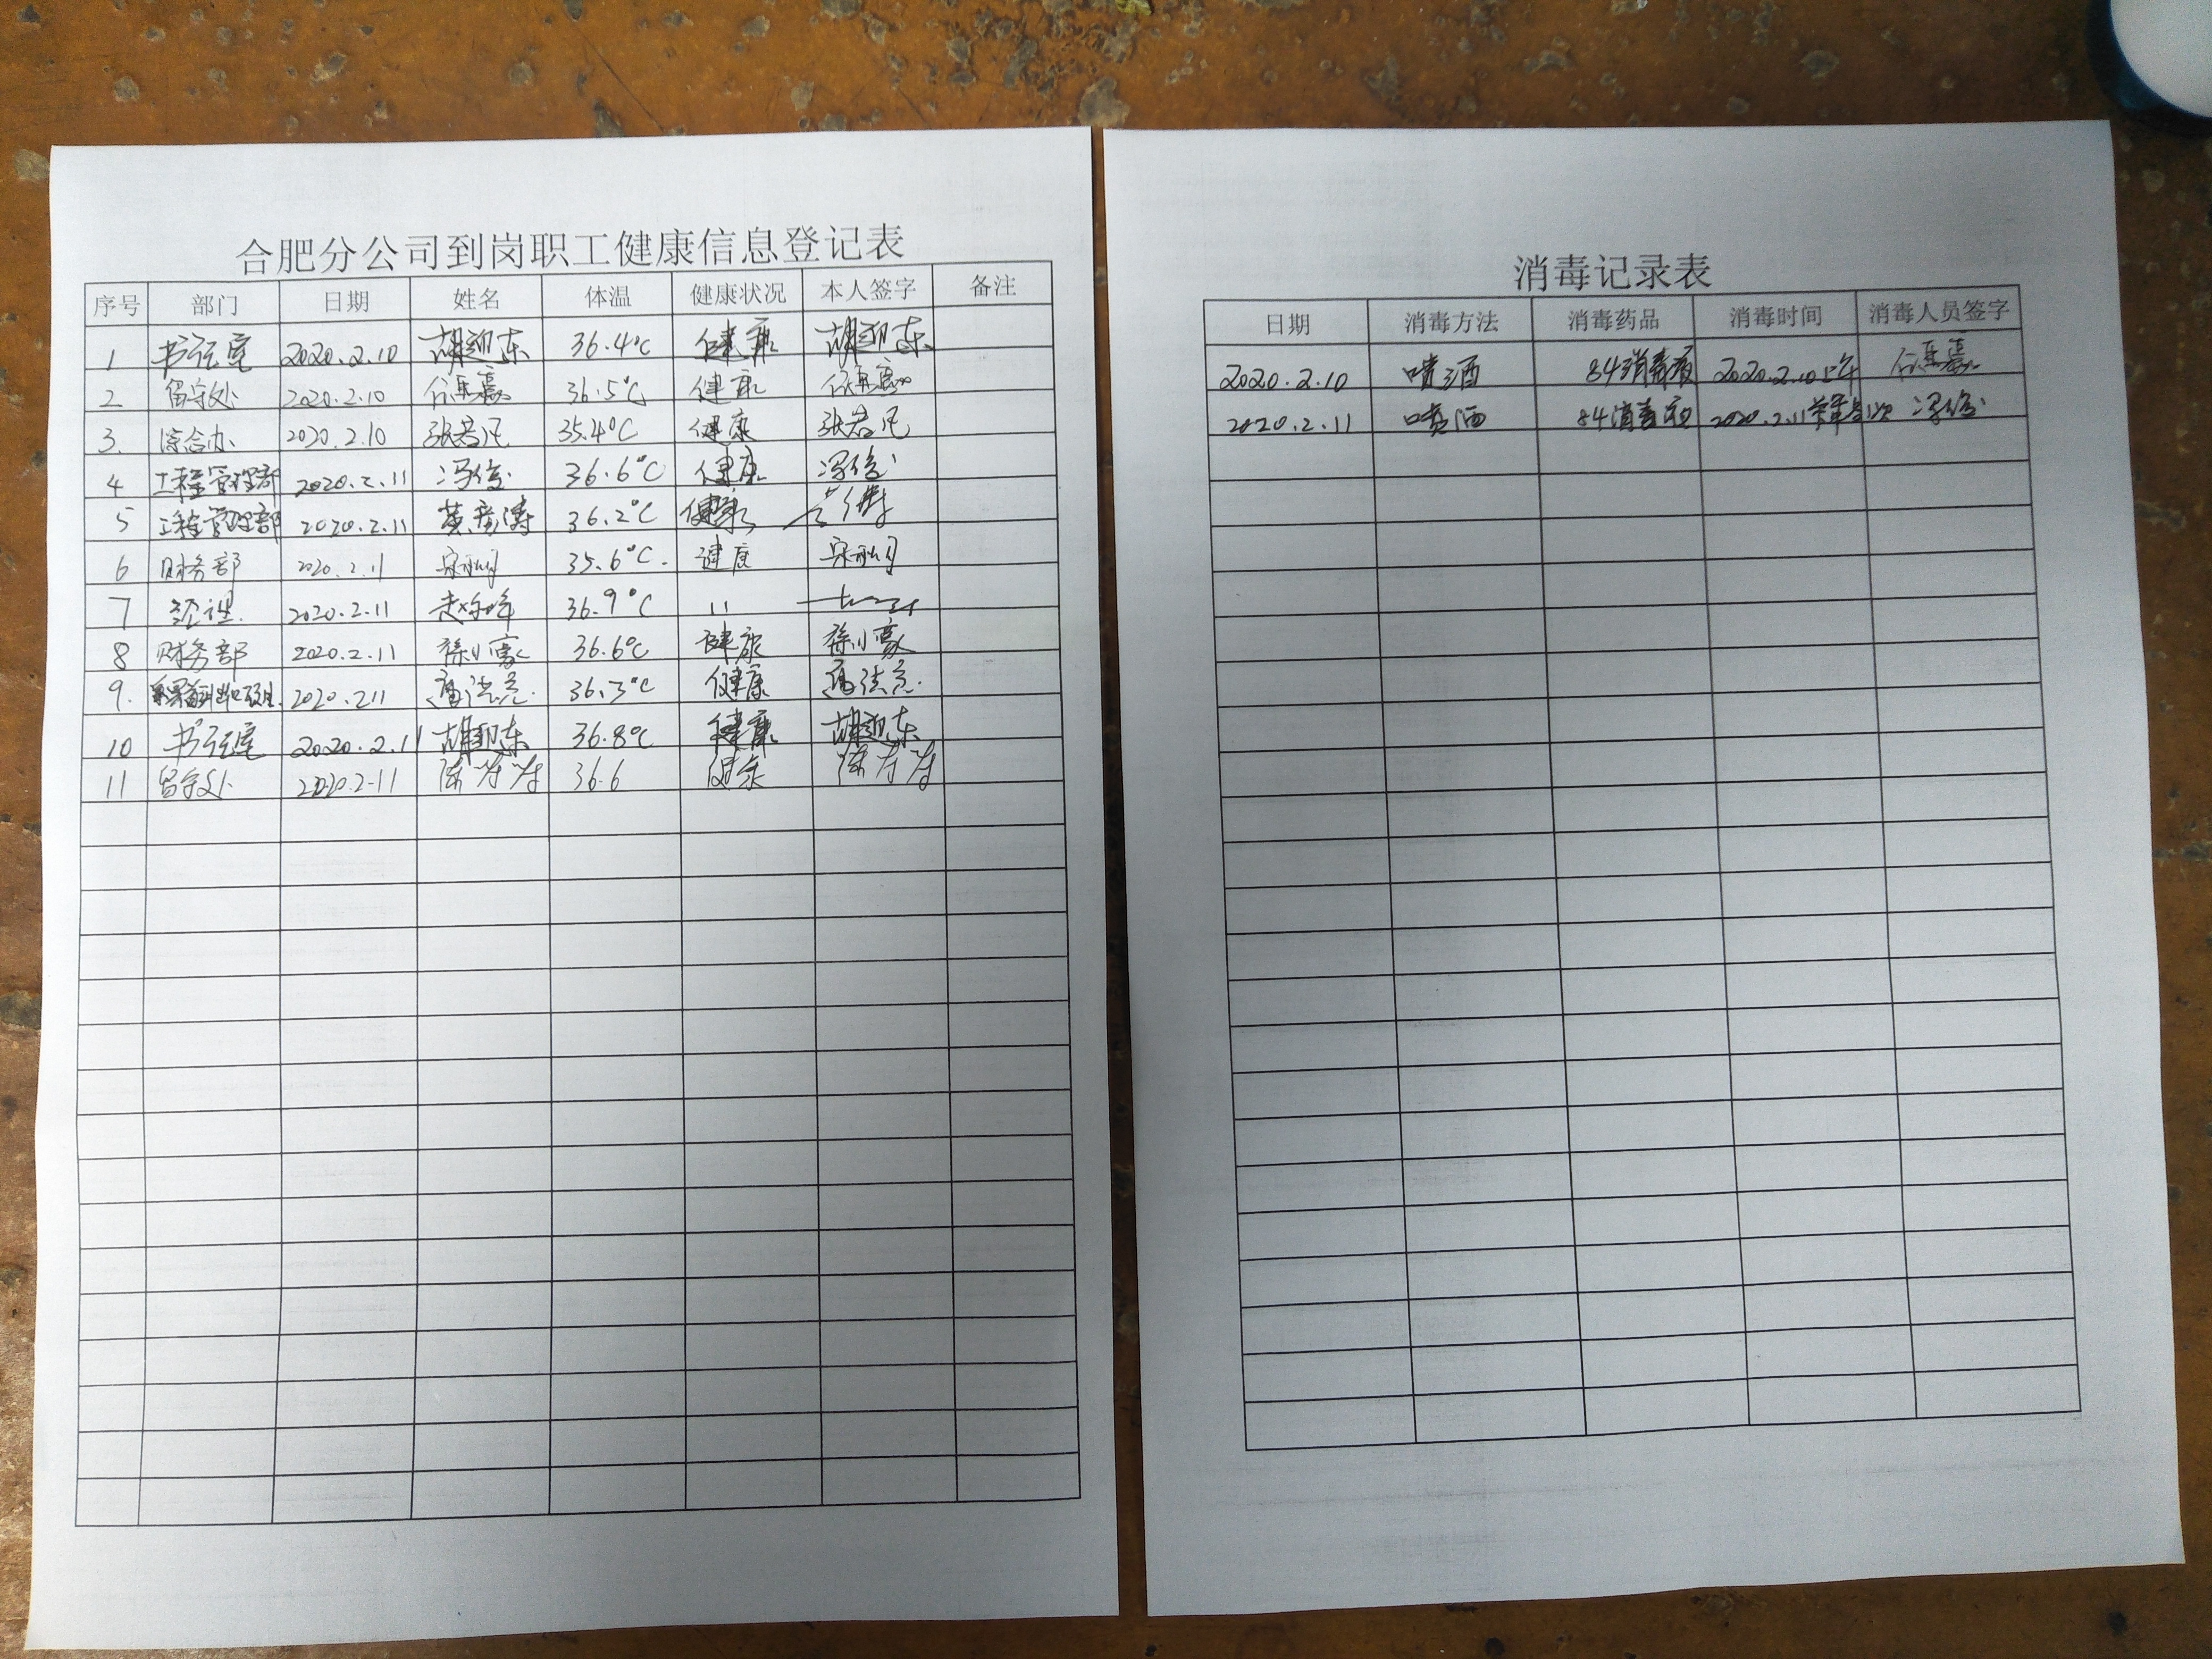 合肥分公司到岗职工健康信息登记表
序号 部门 日期 姓名 体温 健康状况 本人签字 备注
1 书记室 2020.2.10 胡迎东 36.4℃ 健康 胡迎东
2 留守处 2020.2.10 36.5℃ 健康
3. 综合办 2020.2.10 张若凡 35.4℃ 健康 张若凡
4 工程管理部 2020.2.11 冯俊 36.6℃ 健康 冯俊
5 工程管理部 2020.2.11 黄彦涛 36.2℃ 健康
6 财务部 2020.2.11 35.6℃. 健康
7 经理. 2020.2.11 36.9℃ 11
8 财务部 2020.2.11 徐小豪 36.6℃ 健康 徐小豪
9. 2020.2.11 36.3℃ 健康
10 书记室 2020.2.11 胡迎东 36.8℃ 健康 胡迎东
11 留守处 2020.2-11 36.6 健康
消毒记录表
日期 消毒方法 消毒药品 消毒时间 消毒人员签字
2020.2.10 喷洒 84消毒液 2020.2.10上午
2020.2.11 喷洒 84消毒液 2020.2.11 冯俊